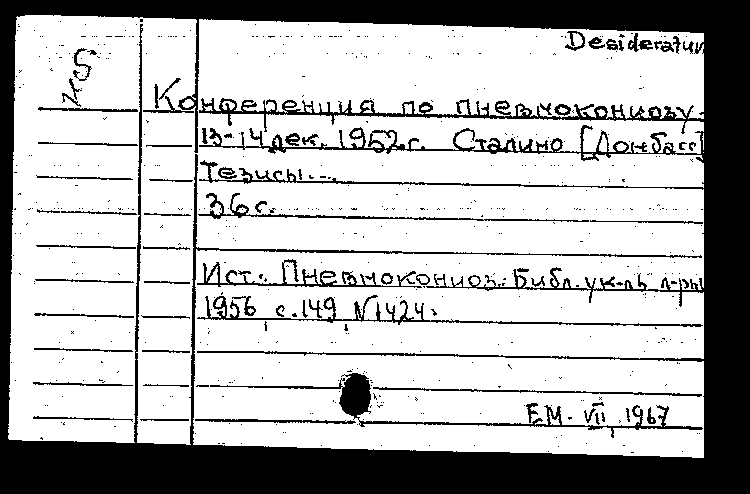 Desideratum
Конференция по пневмокониозу.
13-14 дек. 1952 г. Сталино [Донбасс]
Тезисы...
36 с.
Ист.: Пневмокониоз. Библ. ук-ль л-ры
1956, с. 149, №1424.
Е.М. VII, 1967